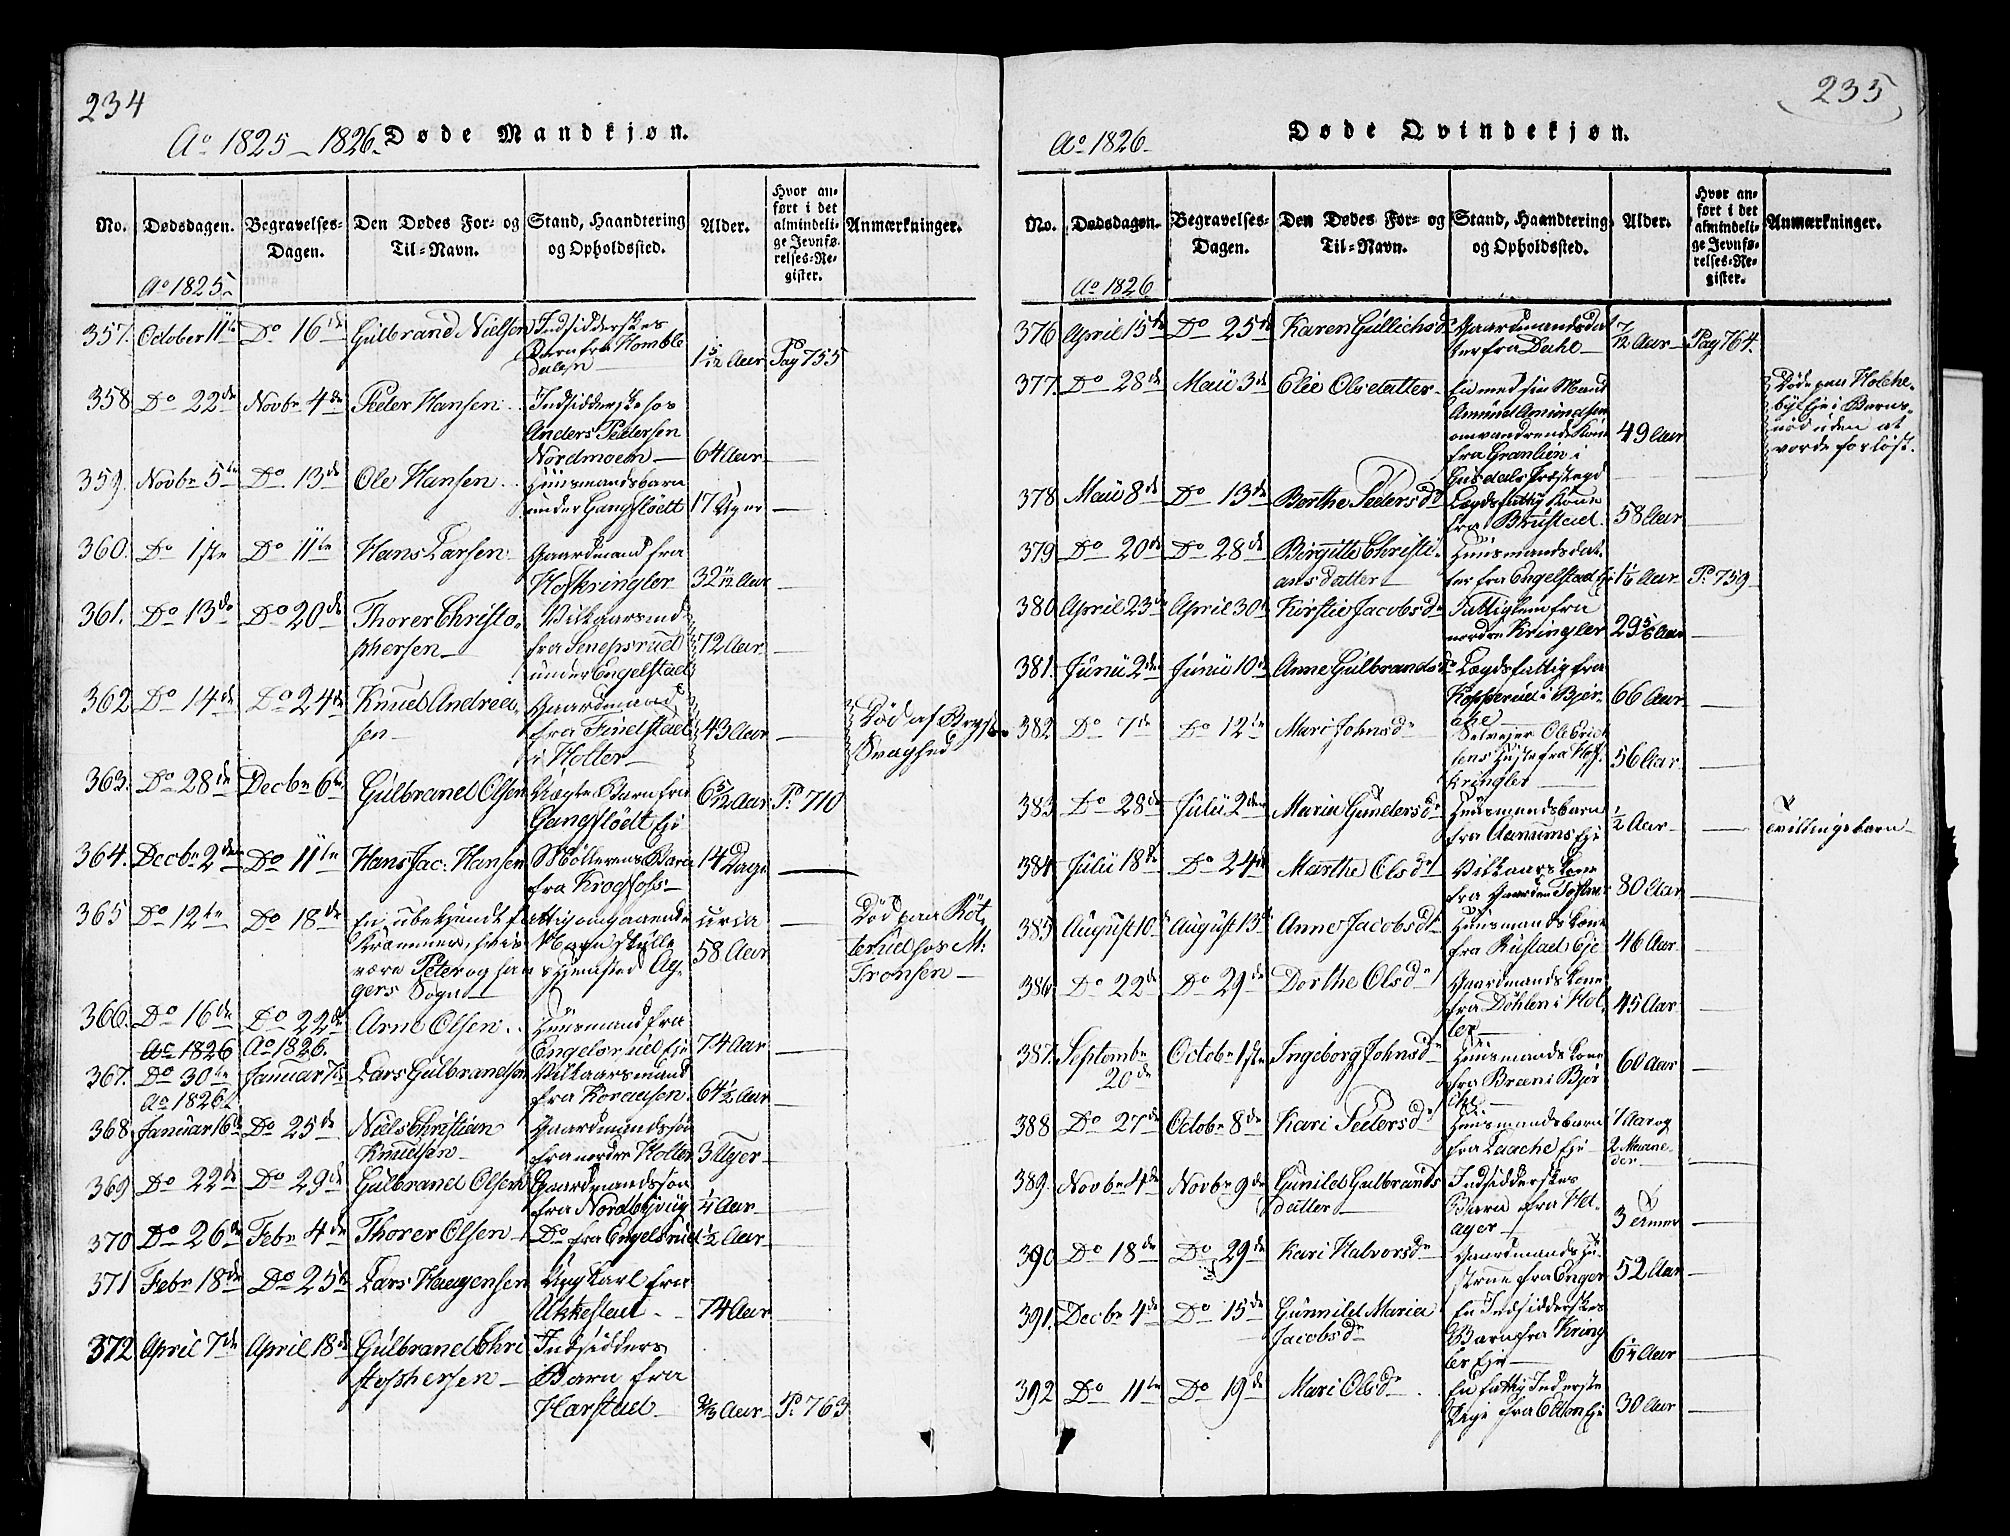 234
Ao 1825 – 1826. Døde Mandkjøn.
No. Dødsdagen. Begravelses-Dagen. Den Dødes For- og Til-Navn. Stand, Haandtering og Opholdssted. Alder. Hvor anført i det almindelige Jevnførelses-Register. Anmærkninger.
Ao 1825
357. October 11te Do 16de Gulbrand Nielsen Indsidderskes
Barn fra Homble
dalen 1 5/12 Aar Pag 755
358 Do 22de Novbr 4de Peder Hansen Indsidderske hos
Anders Pedersen
Nordmoen 64 Aar
359. Novbr 5te Do 13de Ole Hansen Huusmandsbarn
under Gangflödt 17 Uger
360. Do 1ste Do 11te Hans Larsen Gaardmand fra
Hofkringler 32 11/12 Aar
361. Do 13de Do 20de Thorer Christo-
phersen Vilkaarsmd
fra Senepsrud
under Engelstad 72 Aar
362 Do 14de Do 24de Knud Andrea-
sen Gaardmand
fra Findstad
i Holter 43 Aar Död af Bryst
Svaghed
363. Do 28de Decbr 6te Gulbrand Olsen Uægte Barn fra
Gangflödt Eje 6 5/12 Aar P. 710
364. Decbr 2den Do 11te Hans Jac: Hansen Möllerens Barn
fra Krogfoss 14 Dage
365 Do 12te Do 18de En ubekjendt fattig omgaaende
Kræmmer, hvis Navn skulle
være Peter og hans Hjemsted Ag-
gers Sogn circa
58 Aar Död paa Röt
terud hos M:
Tronsen
366. Do 16de Do 22de Arne Olsen Huusmand fra
Engelsrud Eje 74 Aar
Ao 1826 Ao 1826.
367. Do 30te Januar 7de Lars Gulbrandsen Vilkaarsmand
fra Koraasen 64 1/2 Aar
Ao 1826.
368 Januar 16de Do 25de Niels Christian
Knudsen Gaardmandssön
fra nordre Holter 3 Uger
369 Do 22de Do 29de Gulbrand Olsen Gaardmandssön
fra Nordbyvug 1/4 Aar
370 Do 26de Febr 4de Thorer Olsen Do fra Engelsrud 1/2 Aar
371 Febr 18de Do 25te Lars Haagensen Ungkarl fra
Ukkestad 74 Aar
372 April 7de April 18de Gulbrand Chri
stophersen Indsidders
Barn fra
Harstad 2/3 Aar P. 763
235
Ao 1826 Døde Qvindekjøn.
No. Dødsdagen. Begravelses-Dagen. Den Dødes For- og Til-Navn. Stand, Haandtering og Opholdssted. Alder. Hvor anført i det almindelige Jevnførelses-Register. Anmærkninger.
Ao 1826
376 April 15de Do 25de Karen Gullichsdr Gaardmandsdat
ter fra Dahl 7/12 Aar Pag 764.
377. Do 28de Maii 3de Elie Olsdatter En med sin Mand
Amund Amundsen
omvandrende Kone
fra Granlien i
Gusdals Præstegd 49 Aar Döde paa Holche-
bye Eje i Barns-
nöd uden at
vorde forlöst.
378 Maii 8de Do 13de Berthe Pedersdr Lægdsfattig Kone
fra Brustad 58 Aar
379 Do 20de Do 28de Birgitte Christi-
ansdatter Huusmandsdat-
ter fra Engelstad Eje 1 1/6 Aar P. 759
380 April 23de April 30te Kirstie Jacobsdr Fattiglem fra
nordre Kringler 29 5/6 Aar
381. Junii 2den Junii 10de Anne Gulbrandsdr Lægdsfattig fra
Kopperud i Björ-
che 66 Aar
382 Do 7de Do 12te Mari Johnsdr Selvejer Ole
tens Hustr fra Hof
Kringler 56 Aar
383 Do 28de Julii 2den Maria Gundersdr Huusmandsbarn
fra Aamums Eje 1/2 Aar Tvillingebarn
384 Julii 18de Do 24de Marthe Olsdr Vilkaarskone
fra Gaarden 80 Aar
385 August 10de August 13de Anne Jacobsdr Huusmandskone
fra Rustad Eje 46 Aar
386 Do 22de Do 29de Dorthe Olsdr Gaardmandskone
fra Döhlen i Hol-
ter 45 Aar
387. Septembr
20de Octobr 1ste Ingeborg Johnsdr Huusmandskone
fra Bræn i Björ
che 60 Aar
388 Do 27de Octobr 8de Kari Pedersdr Huusmandsbarn
fra Laache Eje 1 Aar og
2 Maane-
der
389. Novbr 4de Novbr 9de Gunild Gulbrands
datter Indsidderskes
Barn fra Hel-
ager 3 Timer
390 Do 18de Do 29de Kari Halvorsdr Gaardmandshu-
strue fra Enger 52 Aar
391. Decbr 4de Do 15de Gunnild Maria
Jacobsdr En Indsidderskes
Barn fra Kring
ler Eje 6 1/4 Aar
392 Do 11te Do 19de Mari Olsdr En fattig Inderste
Pige fra Eje 30 Aar